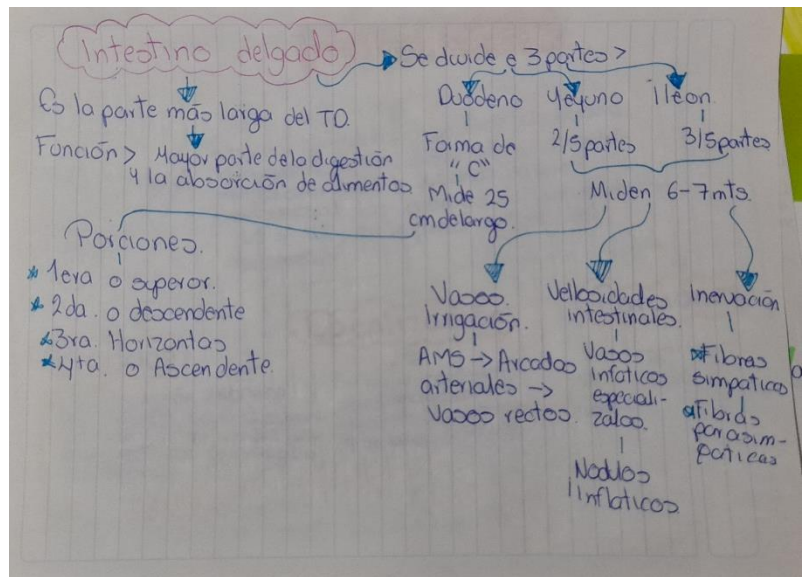 Intestino delgado
Es la parte más larga del TD.
Función > Mayor parte de la digestión
y la absorción de alimentos
Se divide e 3 partes >
Duódeno
Forma de
"C"
Mide 25
cm de largo.
Porciones.
* 1era o superor.
* 2da. o descendente
* 3ra. Horizontas
* 4ta. o Ascendente.
Yeyuno
2/5 partes
íleon.
3/5 partes
Miden 6-7 mts.
Vasos.
Irrigación.
AMS → Arcadas
arteriales →
vasos rectos.
Vellosidades
intestinales.
Vasos
infaticos
especiali-
zalos.
Nodulos
linflaticos
Inervación
* Fibras
simpaticas
* Fibras
parasim-
paticas